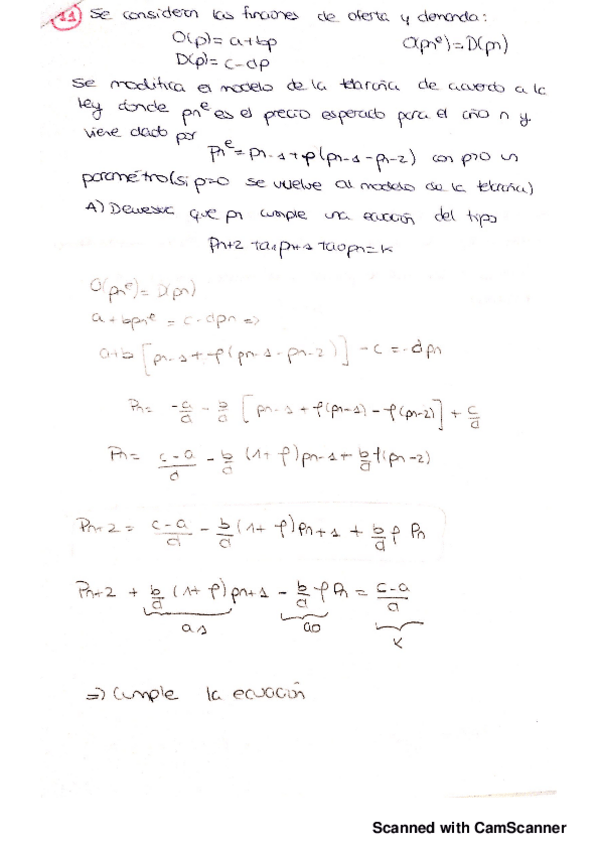 11) Se consideran las funciones de oferta y demanda:
O(p) = a+bp    O(pnᵉ) = D(pn)
D(p) = c-dp
Se modifica el modelo de la telaraña de acuerdo a la
ley donde pnᵉ es el precio esperado para el año n y
viene dado por
pnᵉ = pn-1 + ρ(pn-1 - pn-2) con ρ>0 un
parámetro (si ρ=0 se vuelve al modelo de la telaraña)
A) Demuestra que pn cumple una ecuación del tipo
Pn+2 + a1pn+1 + a0pn = k
O(pnᵉ) = D(pn)
a + bpnᵉ = c - dpn =>
a+b [pn-1 + ρ(pn-1 - pn-2)] - c = -dpn
Pn = -a/d - b/d [pn-1 + ρ(pn-1) - ρ(pn-2)] + c/d
Pn = c-a/d - b/d (1+ρ)pn-1 + b/d ρ(pn-2)
Pn+2 = c-a/d - b/d (1+ρ)pn+1 + b/d ρ Pn
Pn+2 + b/d (1+ρ)pn+1 - b/d ρ Pn = c-a/d
a1    a0    k
=> Cumple la ecuación
Scanned with CamScanner